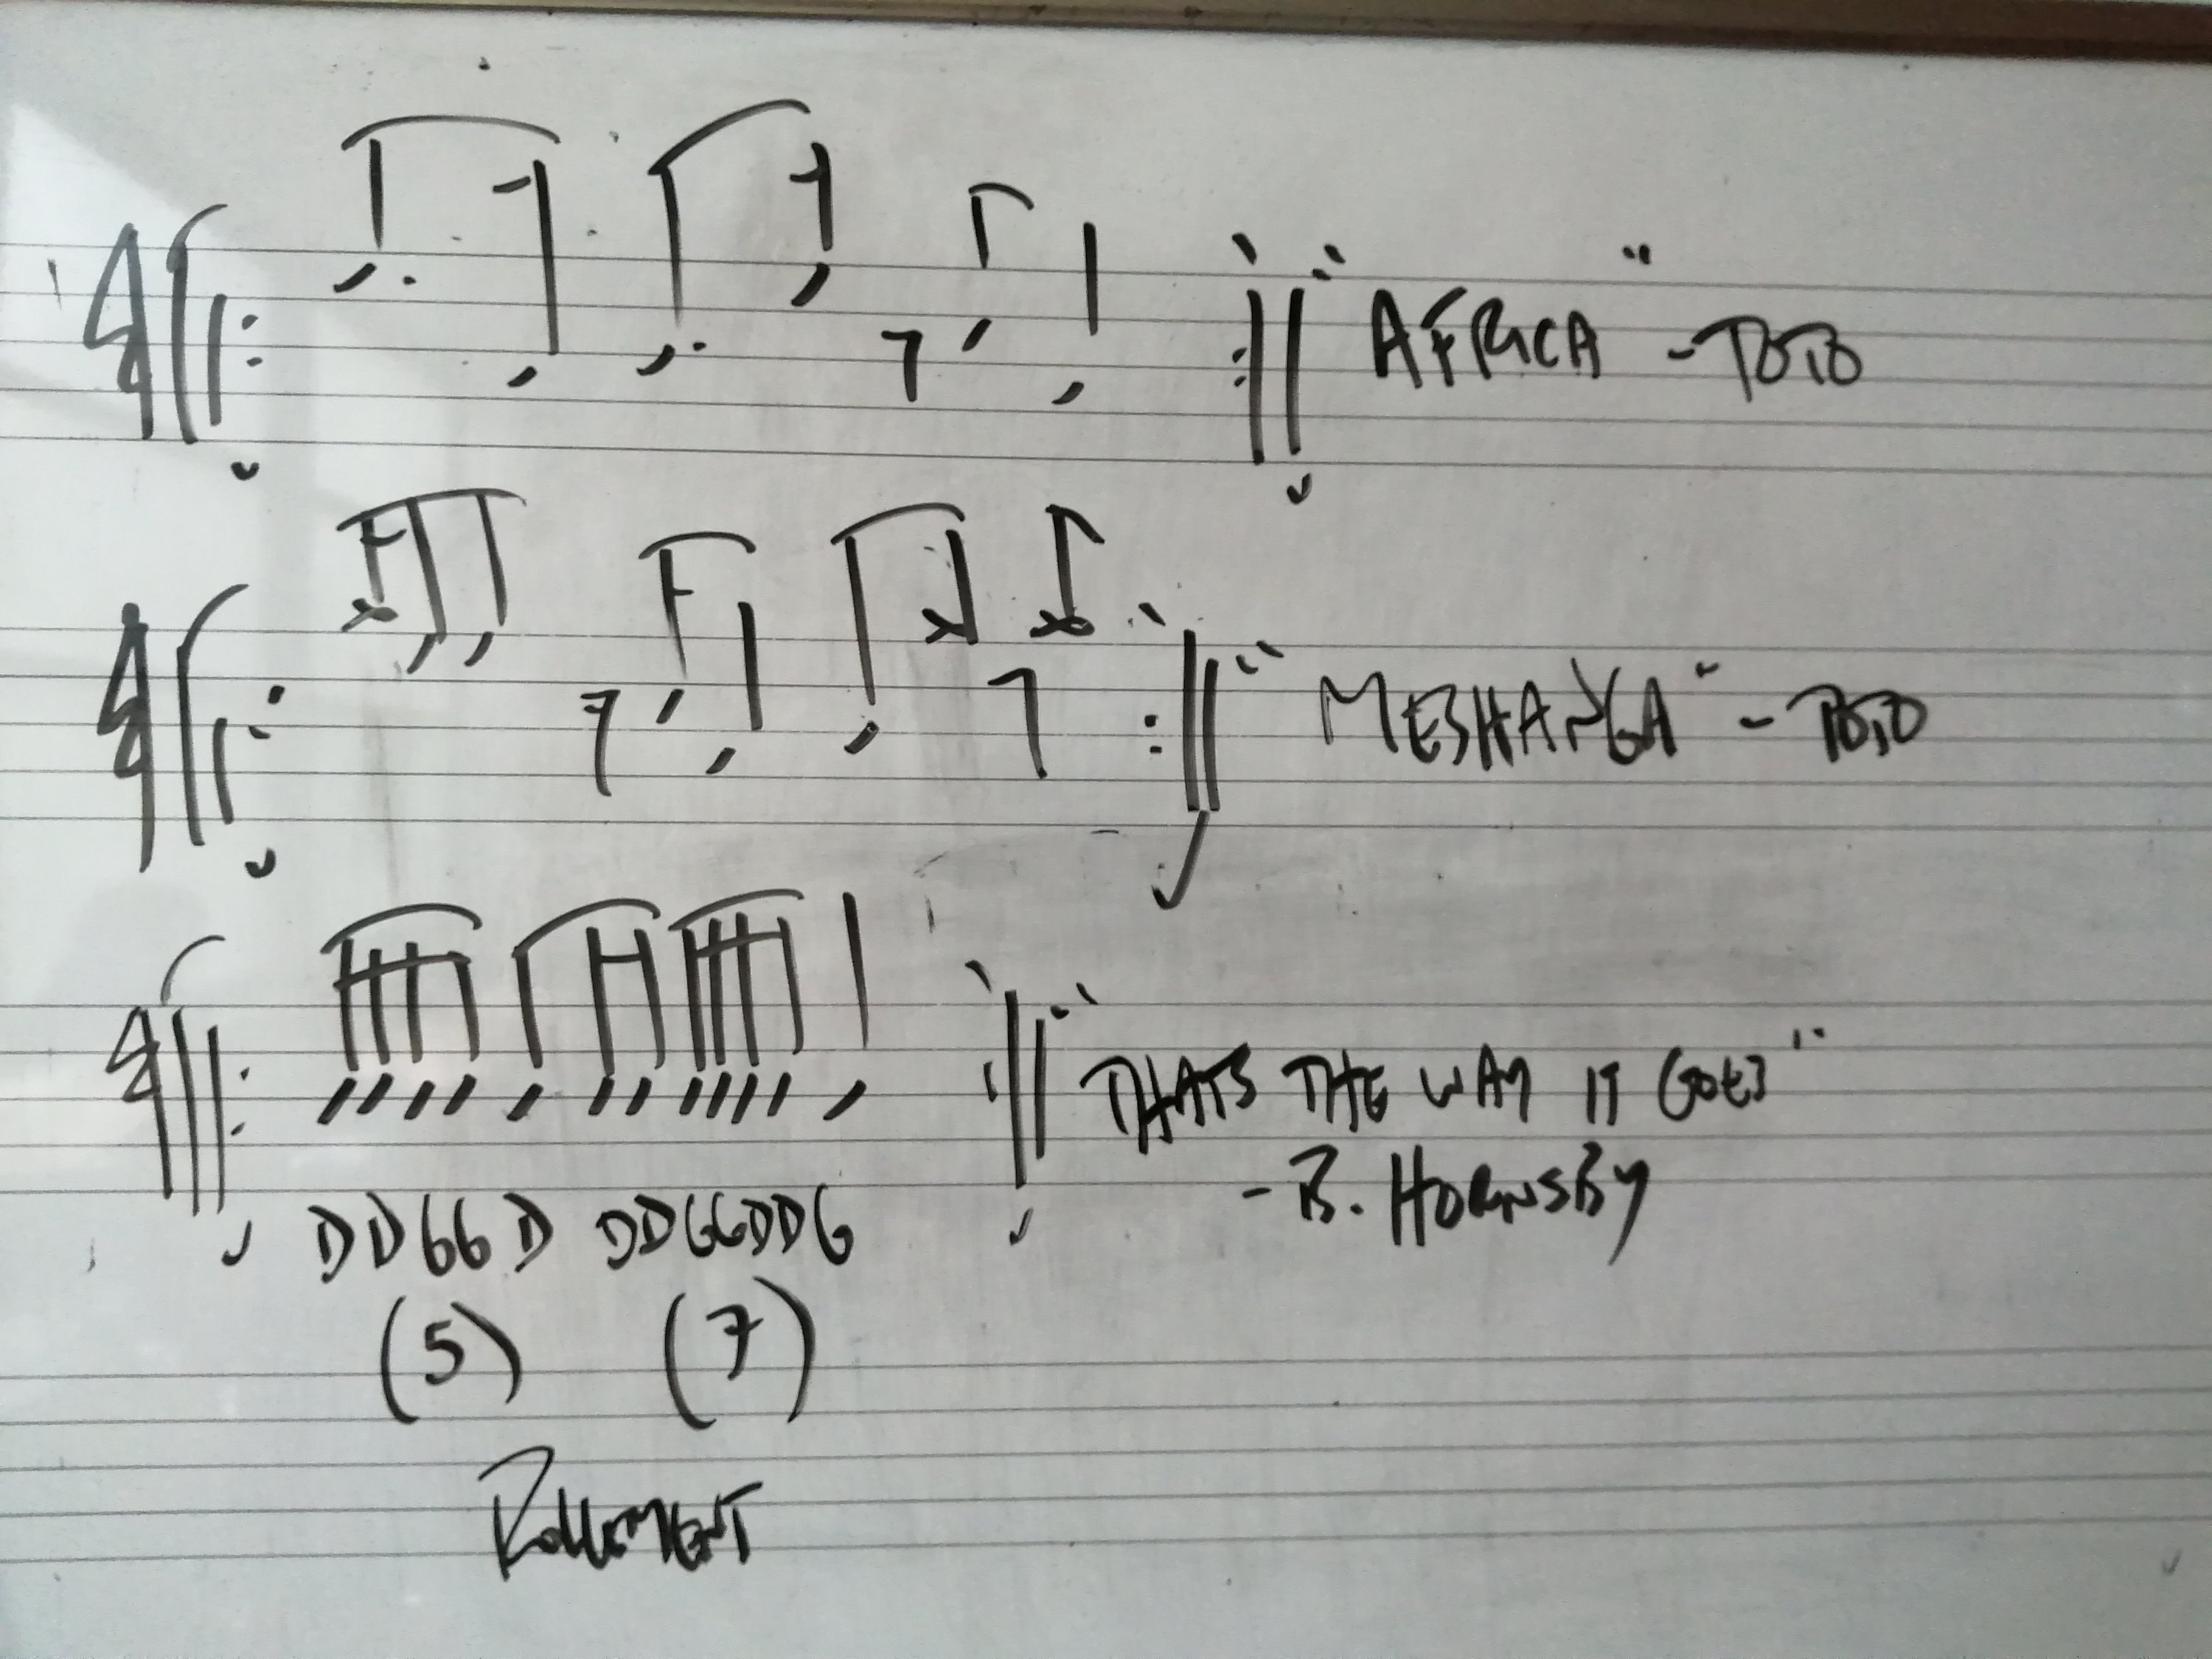 "AFRICA" - TOTO
"MESHANGA" - TOTO
"THATS THE WAY IT GOES"
- B. HORNSBY
DDGGD DDGGDDG
(5) (7)
ROLLEMENT